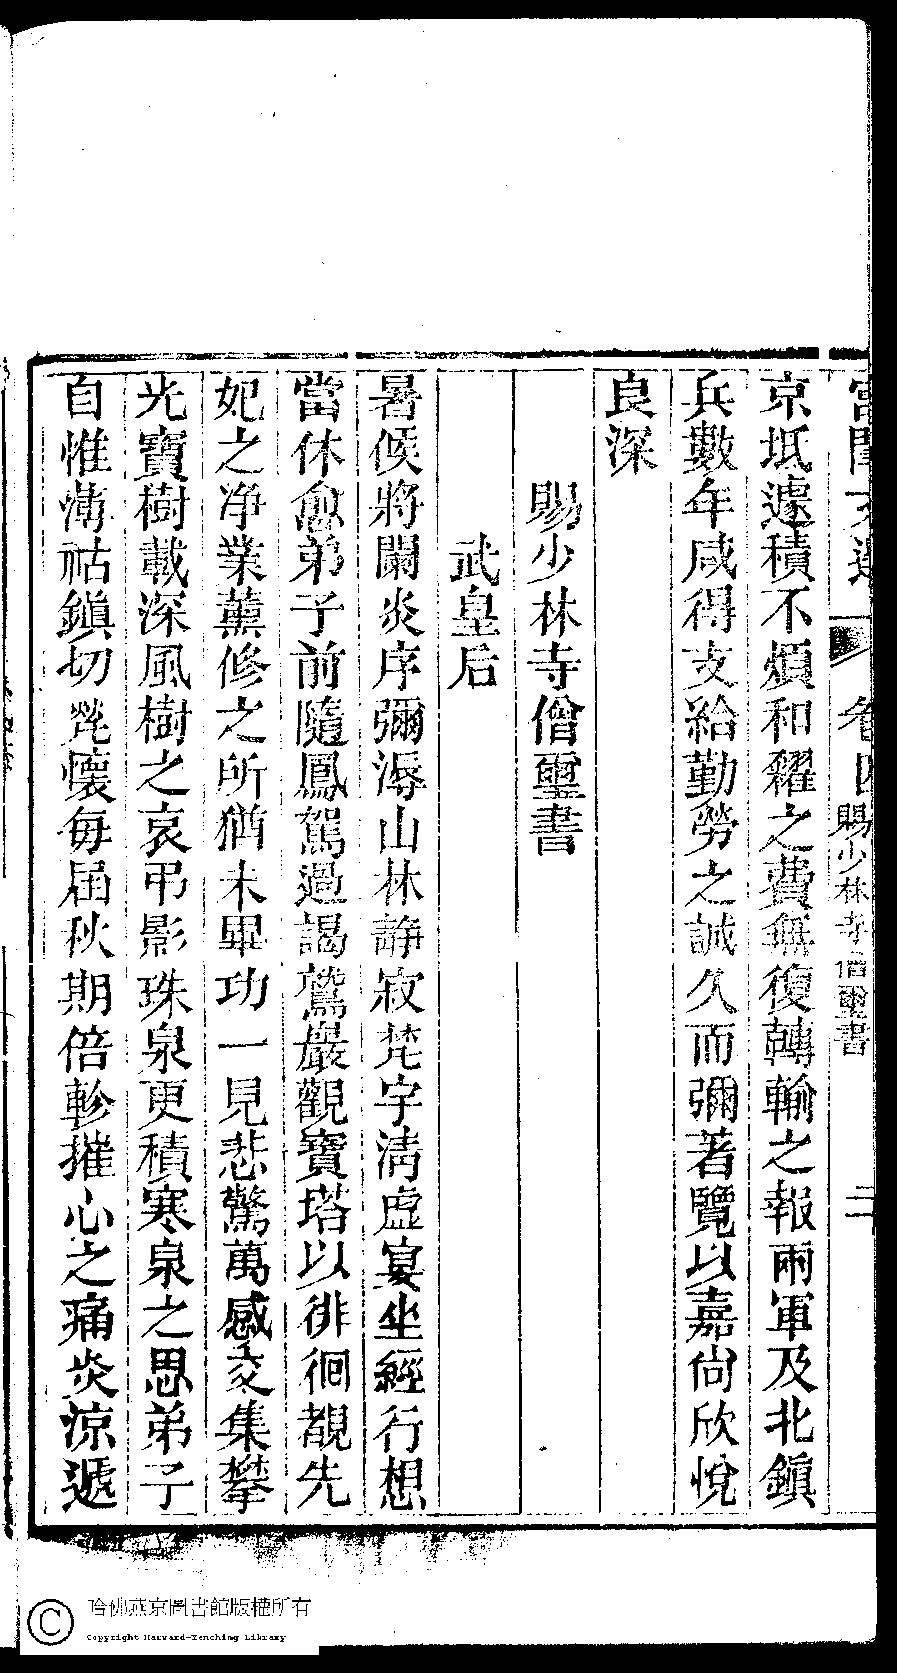 宮閨文選 卷四 賜少林寺僧璽書 二
京坻遽積不煩和糴之費無復轉輸之報兩軍及北鎮
兵數年咸得支給勤勞之誠久而彌著覽以嘉尚欣悅
良深
賜少林寺僧璽書
武皇后
暑候將闌炎序彌溽山林靜寂梵宇清虛宴坐經行想
當休愈弟子前隨鳳駕過謁鷲巖觀寶塔以徘徊覩先
妃之净業薰修之所猶未畢功一見悲驚萬感交集攀
光寶樹載深風樹之哀弔影珠泉更積寒泉之思弟子
自惟薄祜鎮切煢懷每屆秋期倍軫摧心之痛炎涼遞
哈佛燕京圖書館版權所有
Copyright Harvard-Yenching Library